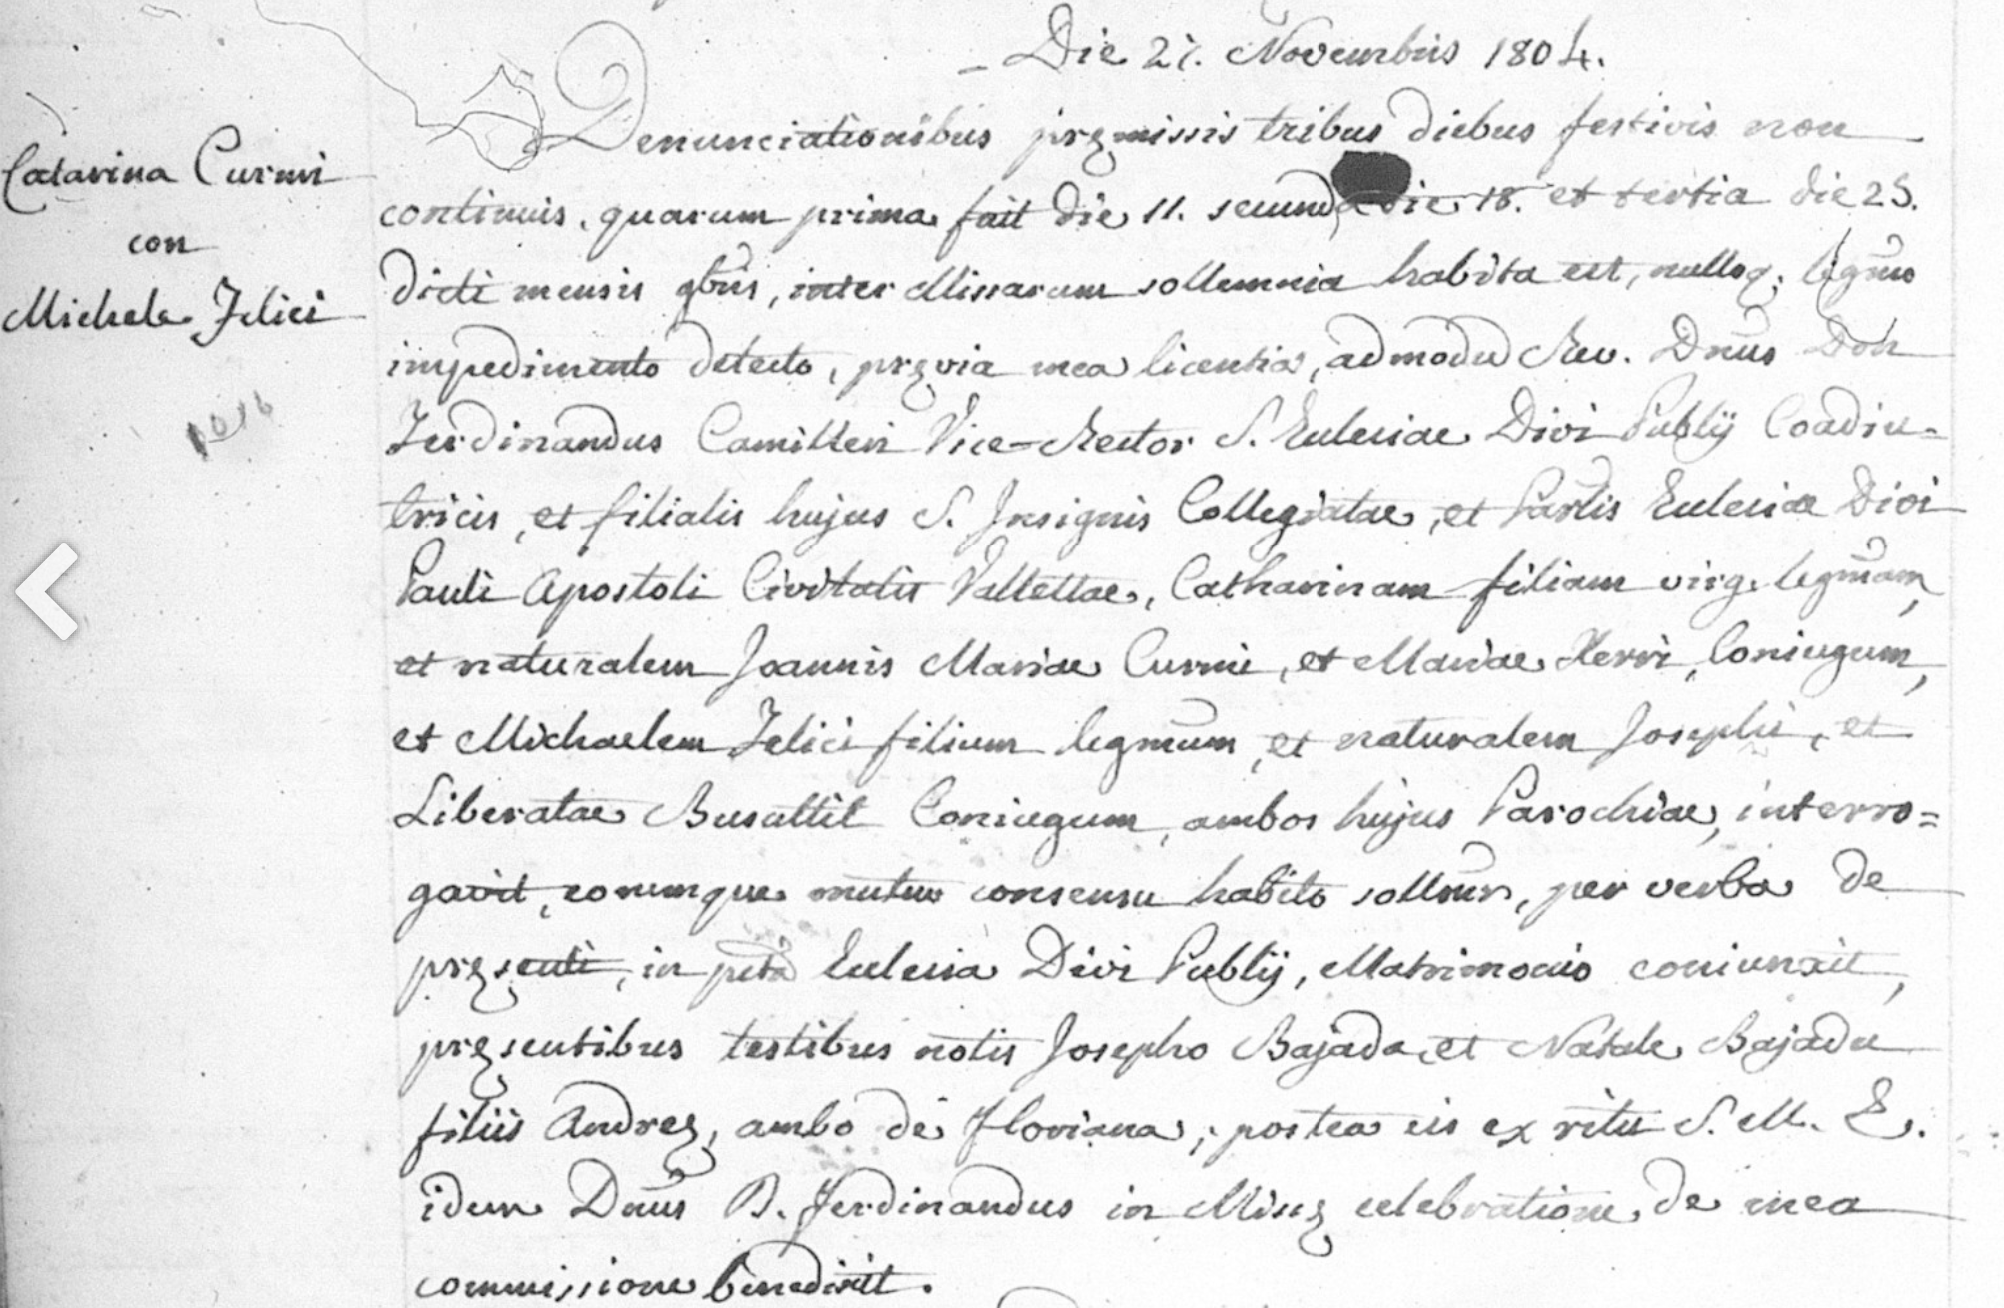 Die 27. Novembris 1804.
Denunciationibus pręmissis tribus diebus festivis non
Catarina Curmi
continuis, quarum prima fuit die 11. secunda die 18. et tertia die 25.
con
dicti mensis 9bris, inter Missarum sollemnia habita est, nulloq; legmo
Michele Felici
impedimento detecto, pręvia mea licentia, admodū Rev. Dnūs Don
Ferdinandus Camilleri Vice-Rector S. Eclesiae Divi Publij Coadiu=
tricis, et filialis hujus S. Insignis Collegiatae, et Parlis Eclesiae Divi
Pauli Apostoli Civitatis Vallettae, Catharinam filiam virg. legmam,
et naturalem Joannis Mariae Curmi, et Mariae Xerri, Coniugum,
et Michaelem Felici filium legmum, et naturalem Josephi, et
Liberatae Busuttil Coniugum, ambos hujus Parochiae, interro=
gavit, eorumque mutuo consensu habito sollmr, per verba de
pręsenti, in pctā Eclesia Divi Publij, Matrimonio coniunxit,
pręsentibus testibus notis Josepho Bajada, et Natale Bajada
filiis Andreę, ambo de Floriana; postea eis ex ritu S. M. E.
idem Dnūs D. Ferdinandus in Missę celebratione de mea
commissione benedixit.